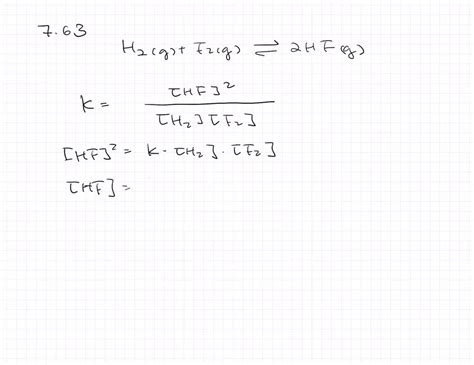 7.63
H₂(g) + F₂(g) ⇌ 2HF(g)
K = [HF]² / [H₂][F₂]
[HF]² = K · [H₂] · [F₂]
[HF] =